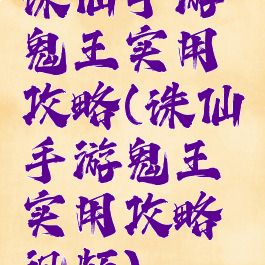 诛仙手游
鬼王实用
攻略(诛仙
手游鬼王
实用攻略
视频)